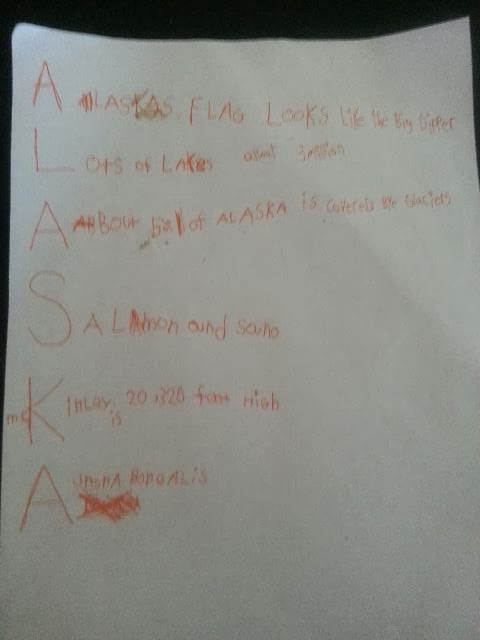 A ALASKAS FLAG LOOKS Like the Big Dipper
L OTS OF LAKES about 3 million
A ABOUT of ALASKA is covered be Glaciers
S ALMon and
mcK inLey, is 20,320 feet HigH
A BoroALis